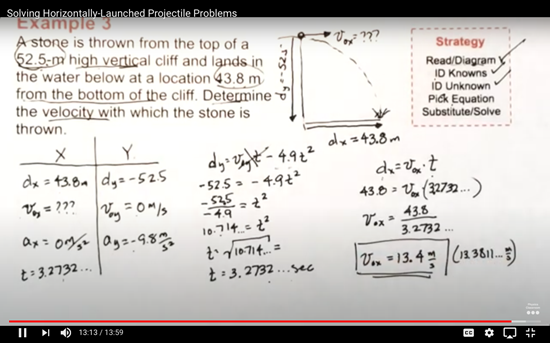 Solving Horizontally-Launched Projectile Problems
Example 3
A stone is thrown from the top of a
52.5-m high vertical cliff and lands in
the water below at a location 43.8 m
from the bottom of the cliff. Determine
the velocity with which the stone is
thrown.
v₀ₓ=???
dy=-52.5
dx=43.8m
Strategy
Read/Diagram
ID Knowns
ID Unknown
Pick Equation
Substitute/Solve
X Y
dx=43.8m dy=-52.5
v₀ₓ=??? v₀y=0m/s
ax=0m/s² ay=-9.8m/s²
t=3.2732...
dy=v₀yt-4.9t²
-52.5=-4.9t²
-52.5/-4.9=t²
10.714...=t²
t=√10.714...=
t=3.2732...sec
dx=v₀ₓ·t
43.8=v₀ₓ(3.2732...)
v₀ₓ=43.8/3.2732...
v₀ₓ=13.4 m/s (13.3811... m/s)
13:13 / 13:59
CC